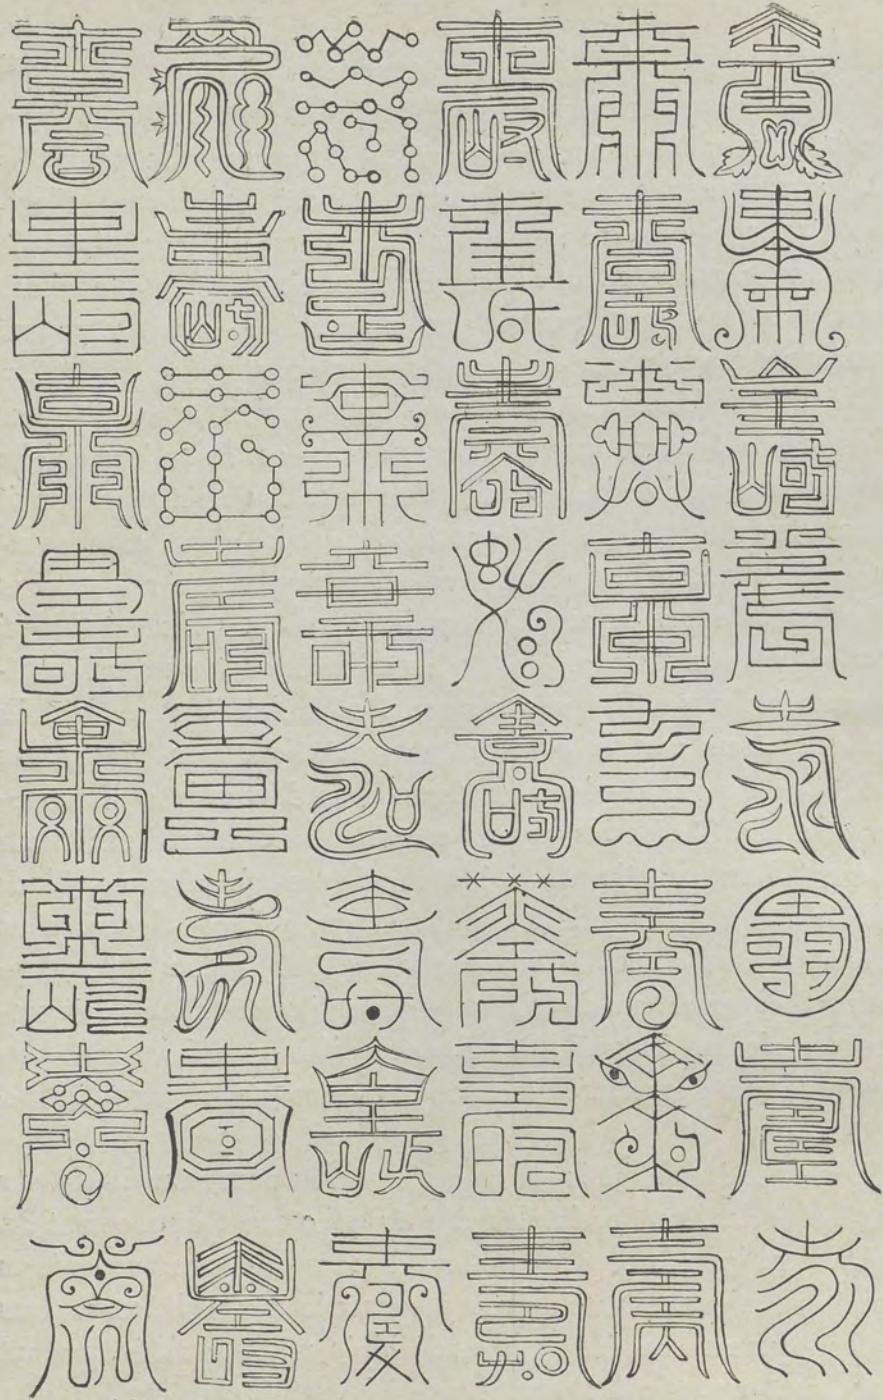 壽壽壽壽壽壽
壽壽壽壽壽壽
壽壽壽壽壽壽
壽壽壽壽壽壽
壽壽壽壽壽壽
壽壽壽壽壽壽
壽壽壽壽壽壽
壽壽壽壽壽壽